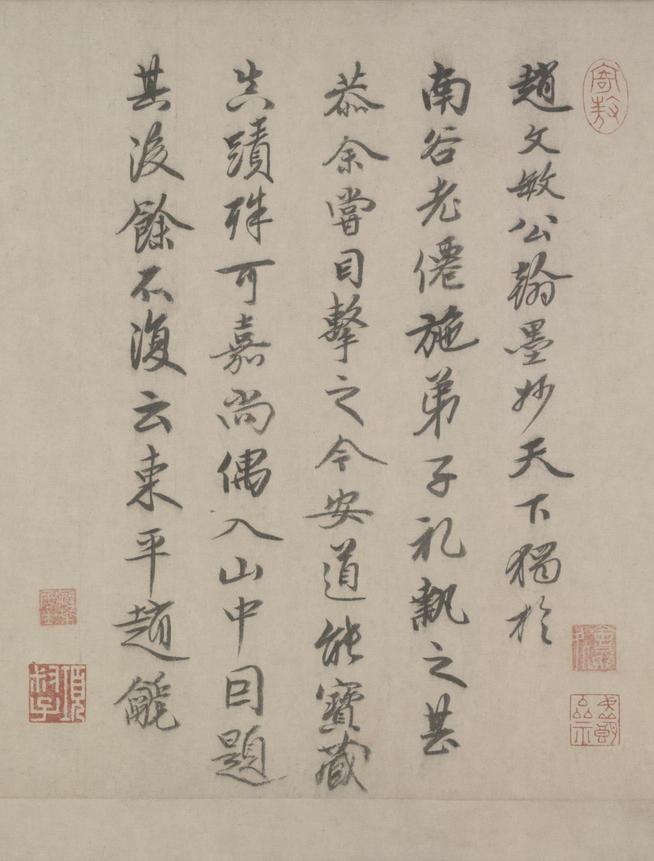 趙文敏公翰墨妙天下獨於
南谷老僊施弟子礼執之甚
恭余嘗目擊之今安道能寶藏
真蹟殊可嘉尚偶入山中囙題
其後餘不復云東平趙
項叔子